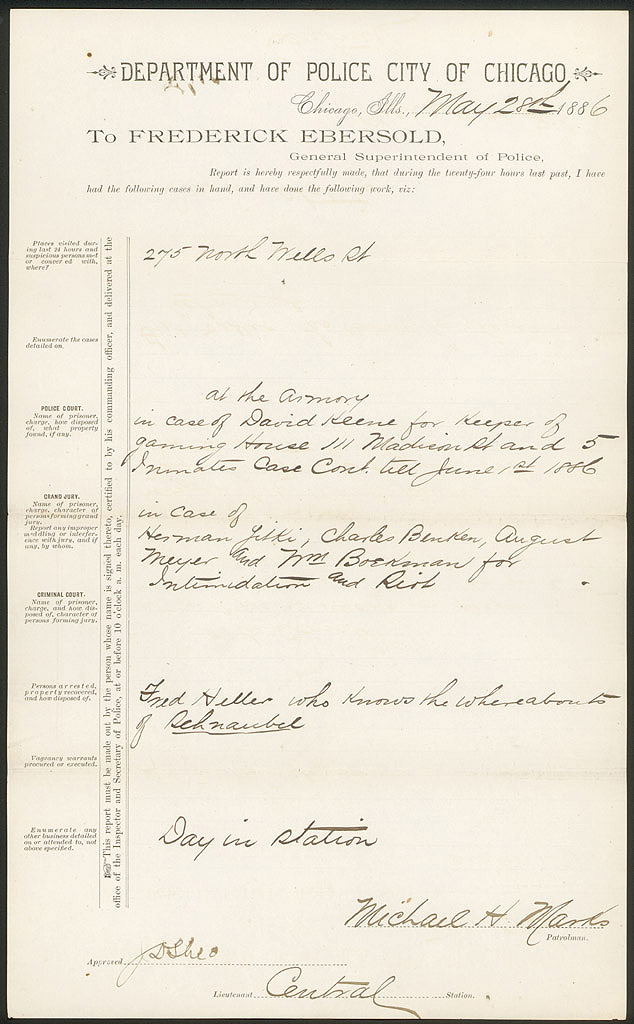 DEPARTMENT OF POLICE CITY OF CHICAGO
Chicago, Ills., May 28th 1886
To FREDERICK EBERSOLD,
General Superintendent of Police,
Report is hereby respectfully made, that during the twenty-four hours last past, I have
had the following cases in hand, and have done the following work, viz:
Places visited dur-
ing last 24 hours and
suspicious persons met
or conversed with,
where?
275 North Wells St
Enumerate the cases
detailed on.
POLICE COURT.
Name of prisoner,
charge, how disposed
of, what property
found, if any.
at the Armory
in case of David Keene for Keeper of
gaming House 111 Madison St and 5
Inmates Case Cont. till June 1st 1886
GRAND JURY.
Name of prisoner,
charge, character of
persons forming grand
jury.
Report any improper
meddling or interfer-
ence with jury, and if
any, by whom.
in case of
Herman, Charles Benken, August
Meyer and Wm Boekman for
Intimidation and Riot
CRIMINAL COURT.
Name of prisoner,
charge, and how dis-
posed of, character of
persons forming jury.
Persons arrested,
property recovered,
and how disposed of.
Fred Heller who Knows the whereabouts
of Schnaubel
Vagrancy warrants
procured or executed.
Enumerate any
other business detailed
on or attended to, not
above specified.
Day in station
This report must be made out by the person whose name is signed thereto, certified to by his commanding officer, and delivered at the
office of the Inspector and Secretary of Police, at or before 10 o'clock a. m. each day.
Michael H. Marks
Patrolman.
Approved JDShea
Lieutenant Central Station.